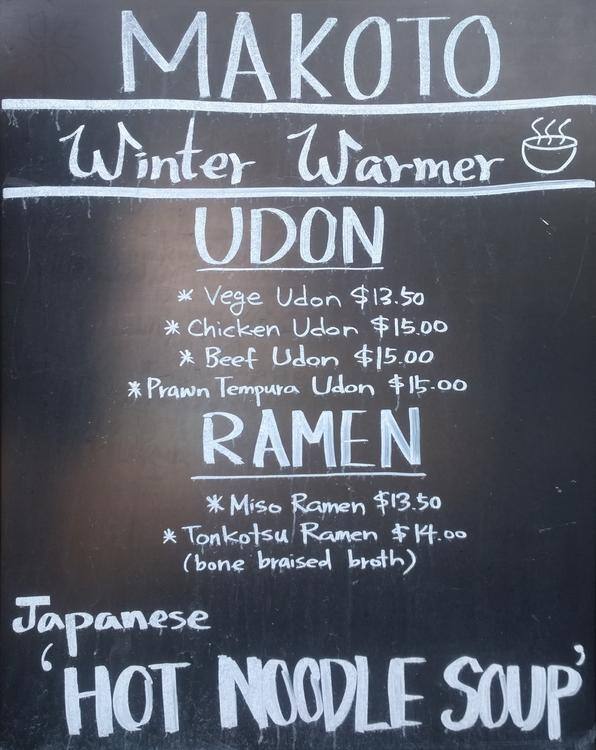 MAKOTO
Winter Warmer
UDON
* Vege Udon $13.50
* Chicken Udon $15.00
* Beef Udon $15.00
* Prawn Tempura Udon $15.00
RAMEN
* Miso Ramen $13.50
* Tonkotsu Ramen $14.00
(bone braised broth)
Japanese
'HOT NOODLE SOUP'